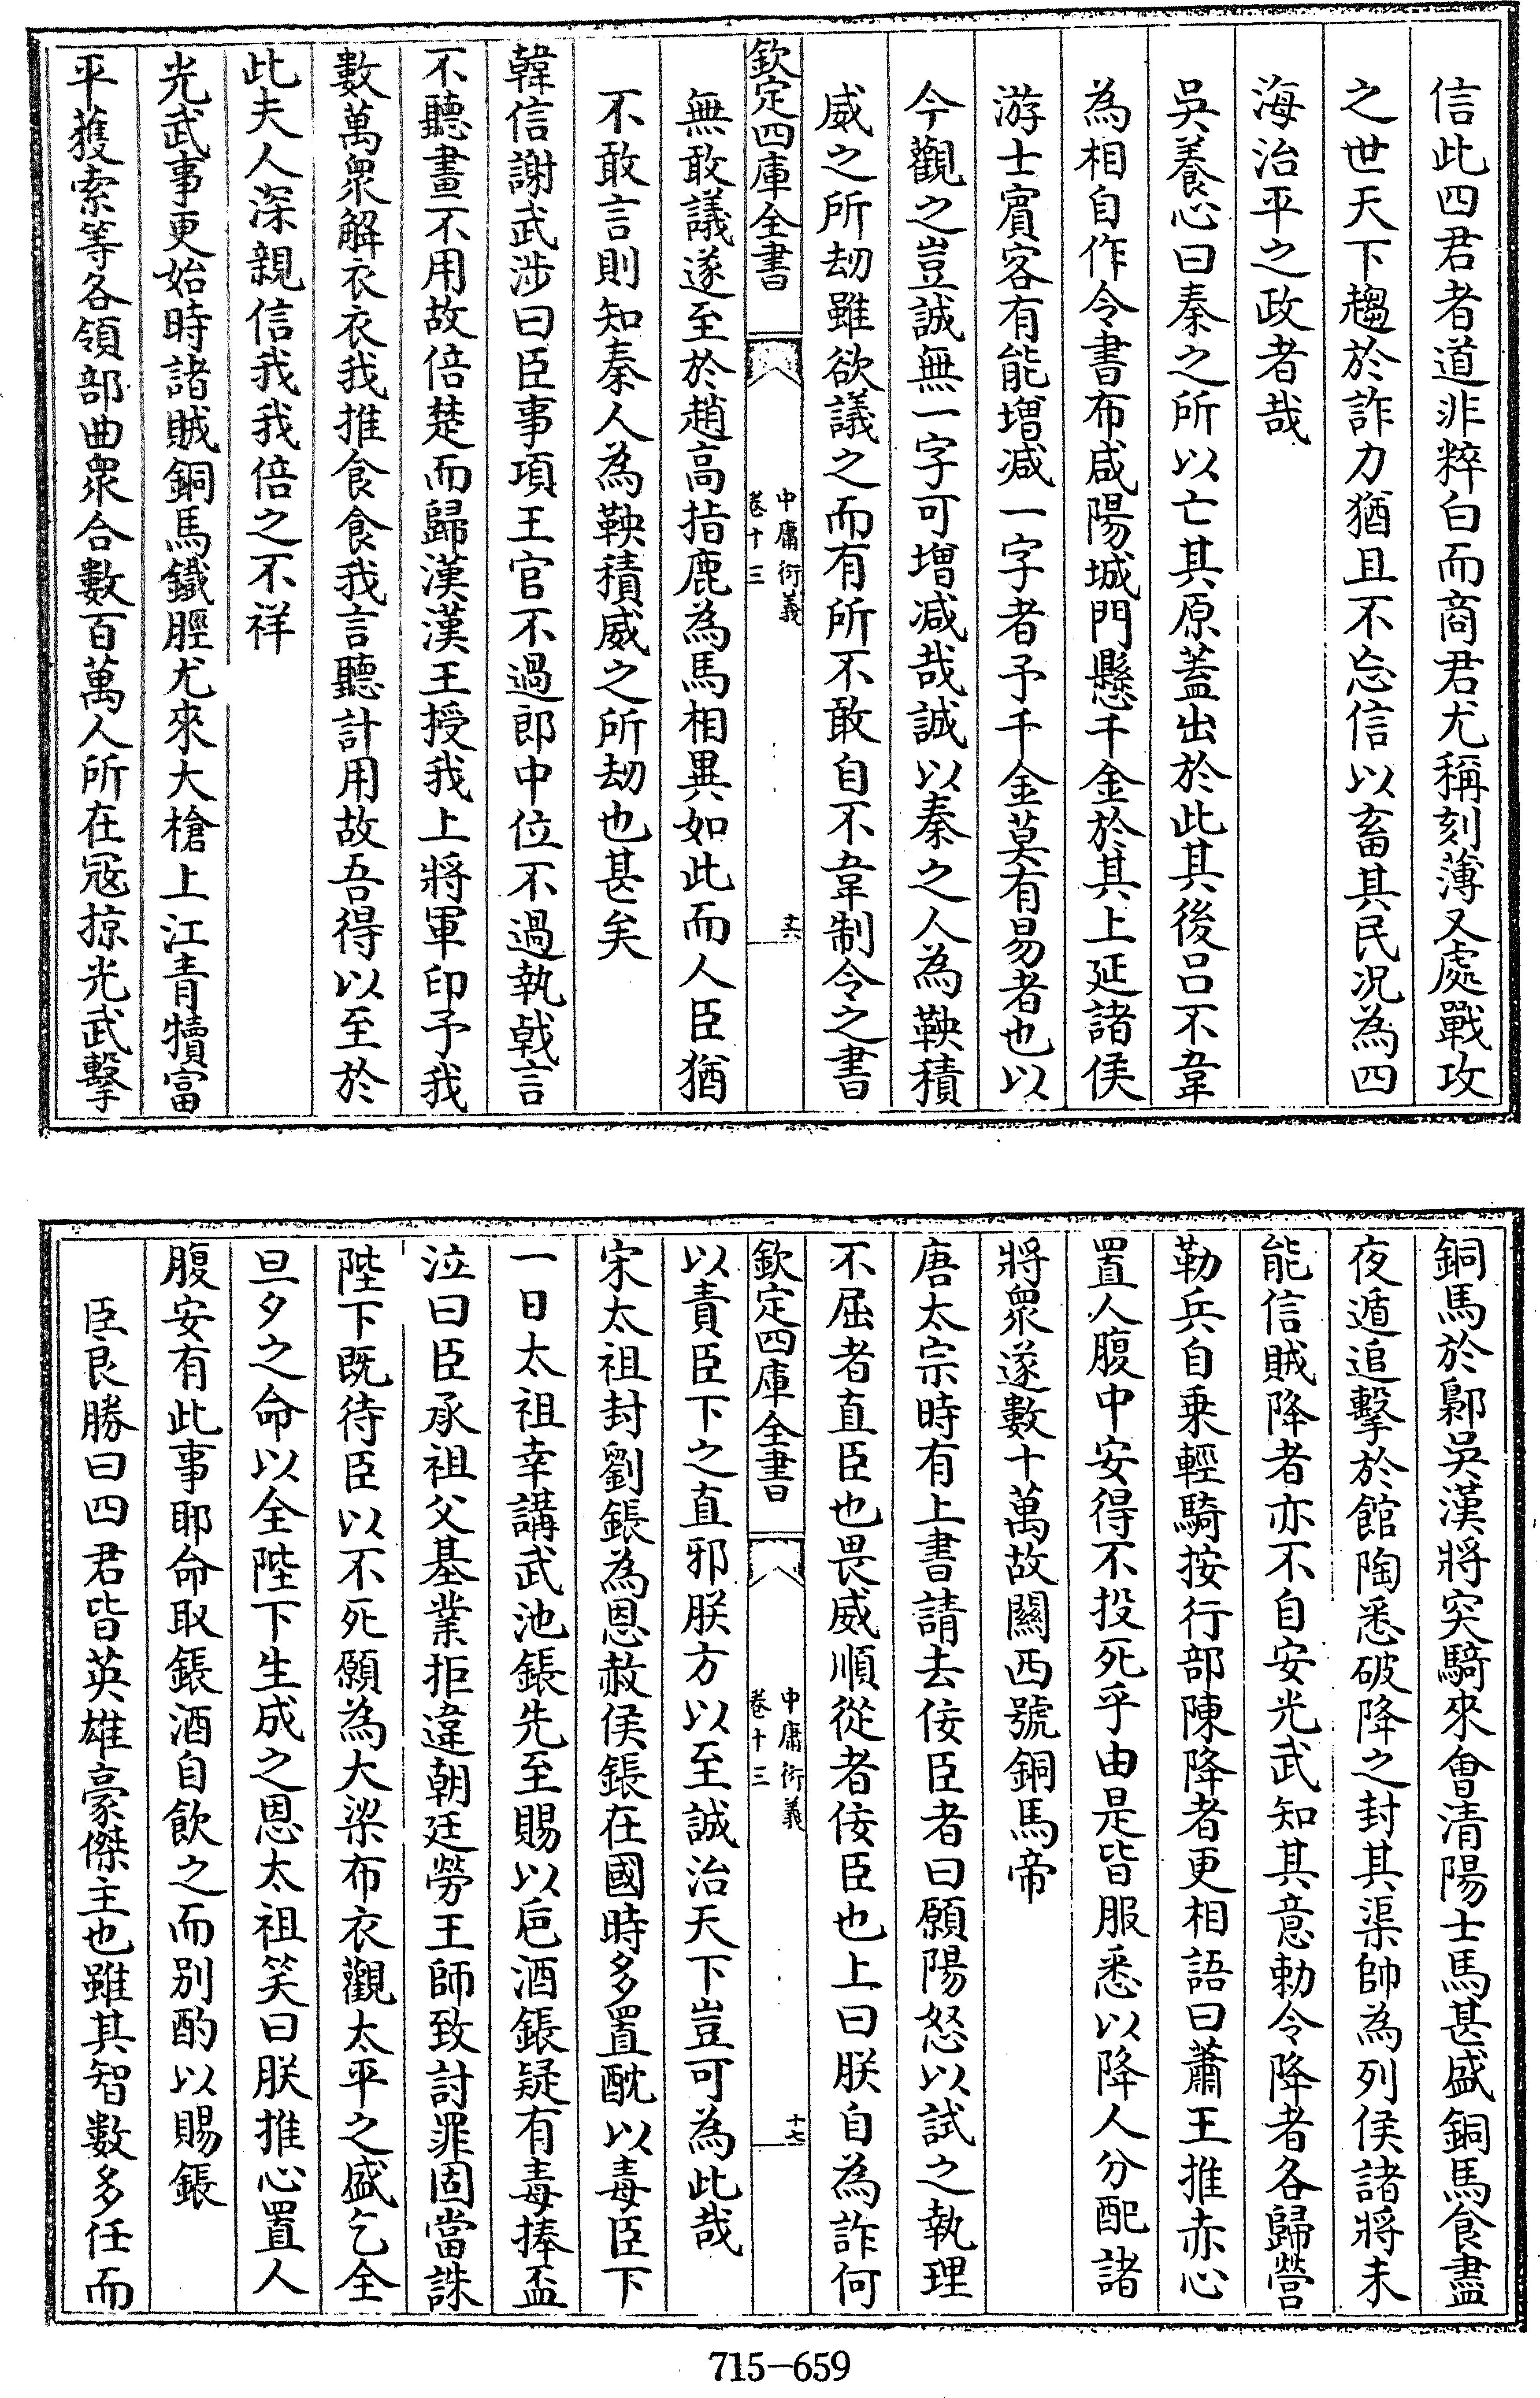 信此四君者道非粹白而商君尤稱刻薄又處戰攻
之世天下趨於詐力猶且不忘信以畜其民況為四
海治平之政者哉
吳養心曰秦之所以亡其原蓋出於此其後呂不韋
為相自作令書布咸陽城門懸千金於其上延諸侯
游士賓客有能增減一字者予千金莫有易者也以
今觀之豈誠無一字可增減哉誠以秦之人為鞅積
威之所劫雖欲議之而有所不敢自不韋制令之書
欽定四庫全書
中庸衍義
卷十三
十六
無敢議遂至於趙高指鹿為馬相異如此而人臣猶
不敢言則知秦人為鞅積威之所劫也甚矣
韓信謝武涉曰臣事項王官不過郎中位不過執戟言
不聽畫不用故倍楚而歸漢漢王授我上將軍印予我
數萬眾解衣衣我推食食我言聽計用故吾得以至於
此夫人深親信我我倍之不祥
光武事更始時諸賊銅馬鐵脛尤來大槍上江青犢富
平獲索等各領部曲眾合數百萬人所在寇掠光武擊
銅馬於鄡吳漢將突騎來會清陽士馬甚盛銅馬食盡
夜遁追擊於館陶悉破降之封其渠帥為列侯諸將未
能信賊降者亦不自安光武知其意勅令降者各歸營
勒兵自乘輕騎按行部陳降者更相語曰蕭王推赤心
置人腹中安得不投死乎由是皆服悉以降人分配諸
將眾遂數十萬故關西號銅馬帝
唐太宗時有上書請去佞臣者曰願陽怒以試之執理
不屈者直臣也畏威順從者佞臣也上曰朕自為詐何
欽定四庫全書
中庸衍義
卷十三
十七
以責臣下之直邪朕方以至誠治天下豈可為此哉
宋太祖封劉鋹為恩赦侯鋹在國時多置酖以毒臣下
一日太祖幸講武池鋹先至賜以巵酒鋹疑有毒捧盃
泣曰臣承祖父基業拒違朝廷勞王師致討罪固當誅
陛下既待臣以不死願為大梁布衣觀太平之盛乞全
旦夕之命以全陛下生成之恩太祖笑曰朕推心置人
腹安有此事耶命取鋹酒自飲之而別酌以賜鋹
臣良勝曰四君皆英雄豪傑主也雖其智數多任而
715-659